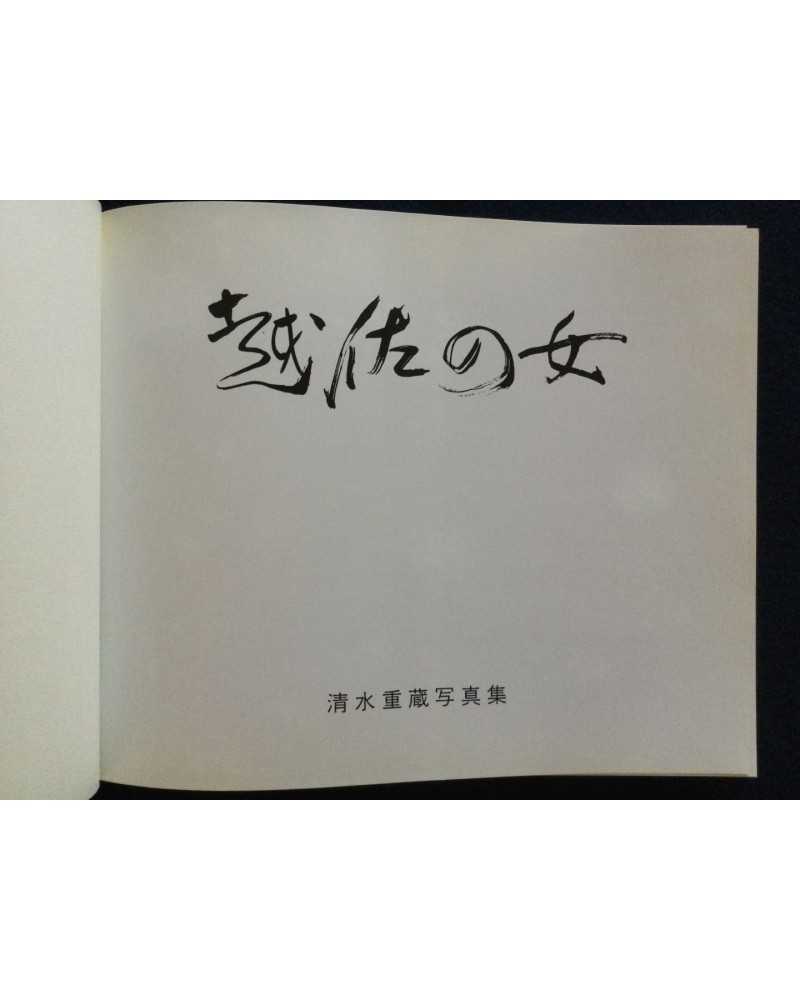 越佐の女
清水重蔵写真集